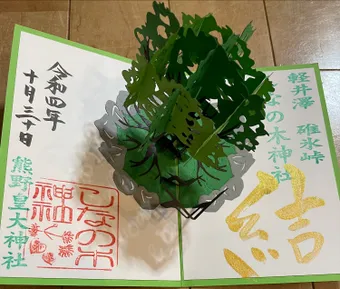 軽井澤 碓氷峠
しなの木神社
結
令和四年
十月三十日
熊野皇大神社
しなの木
神